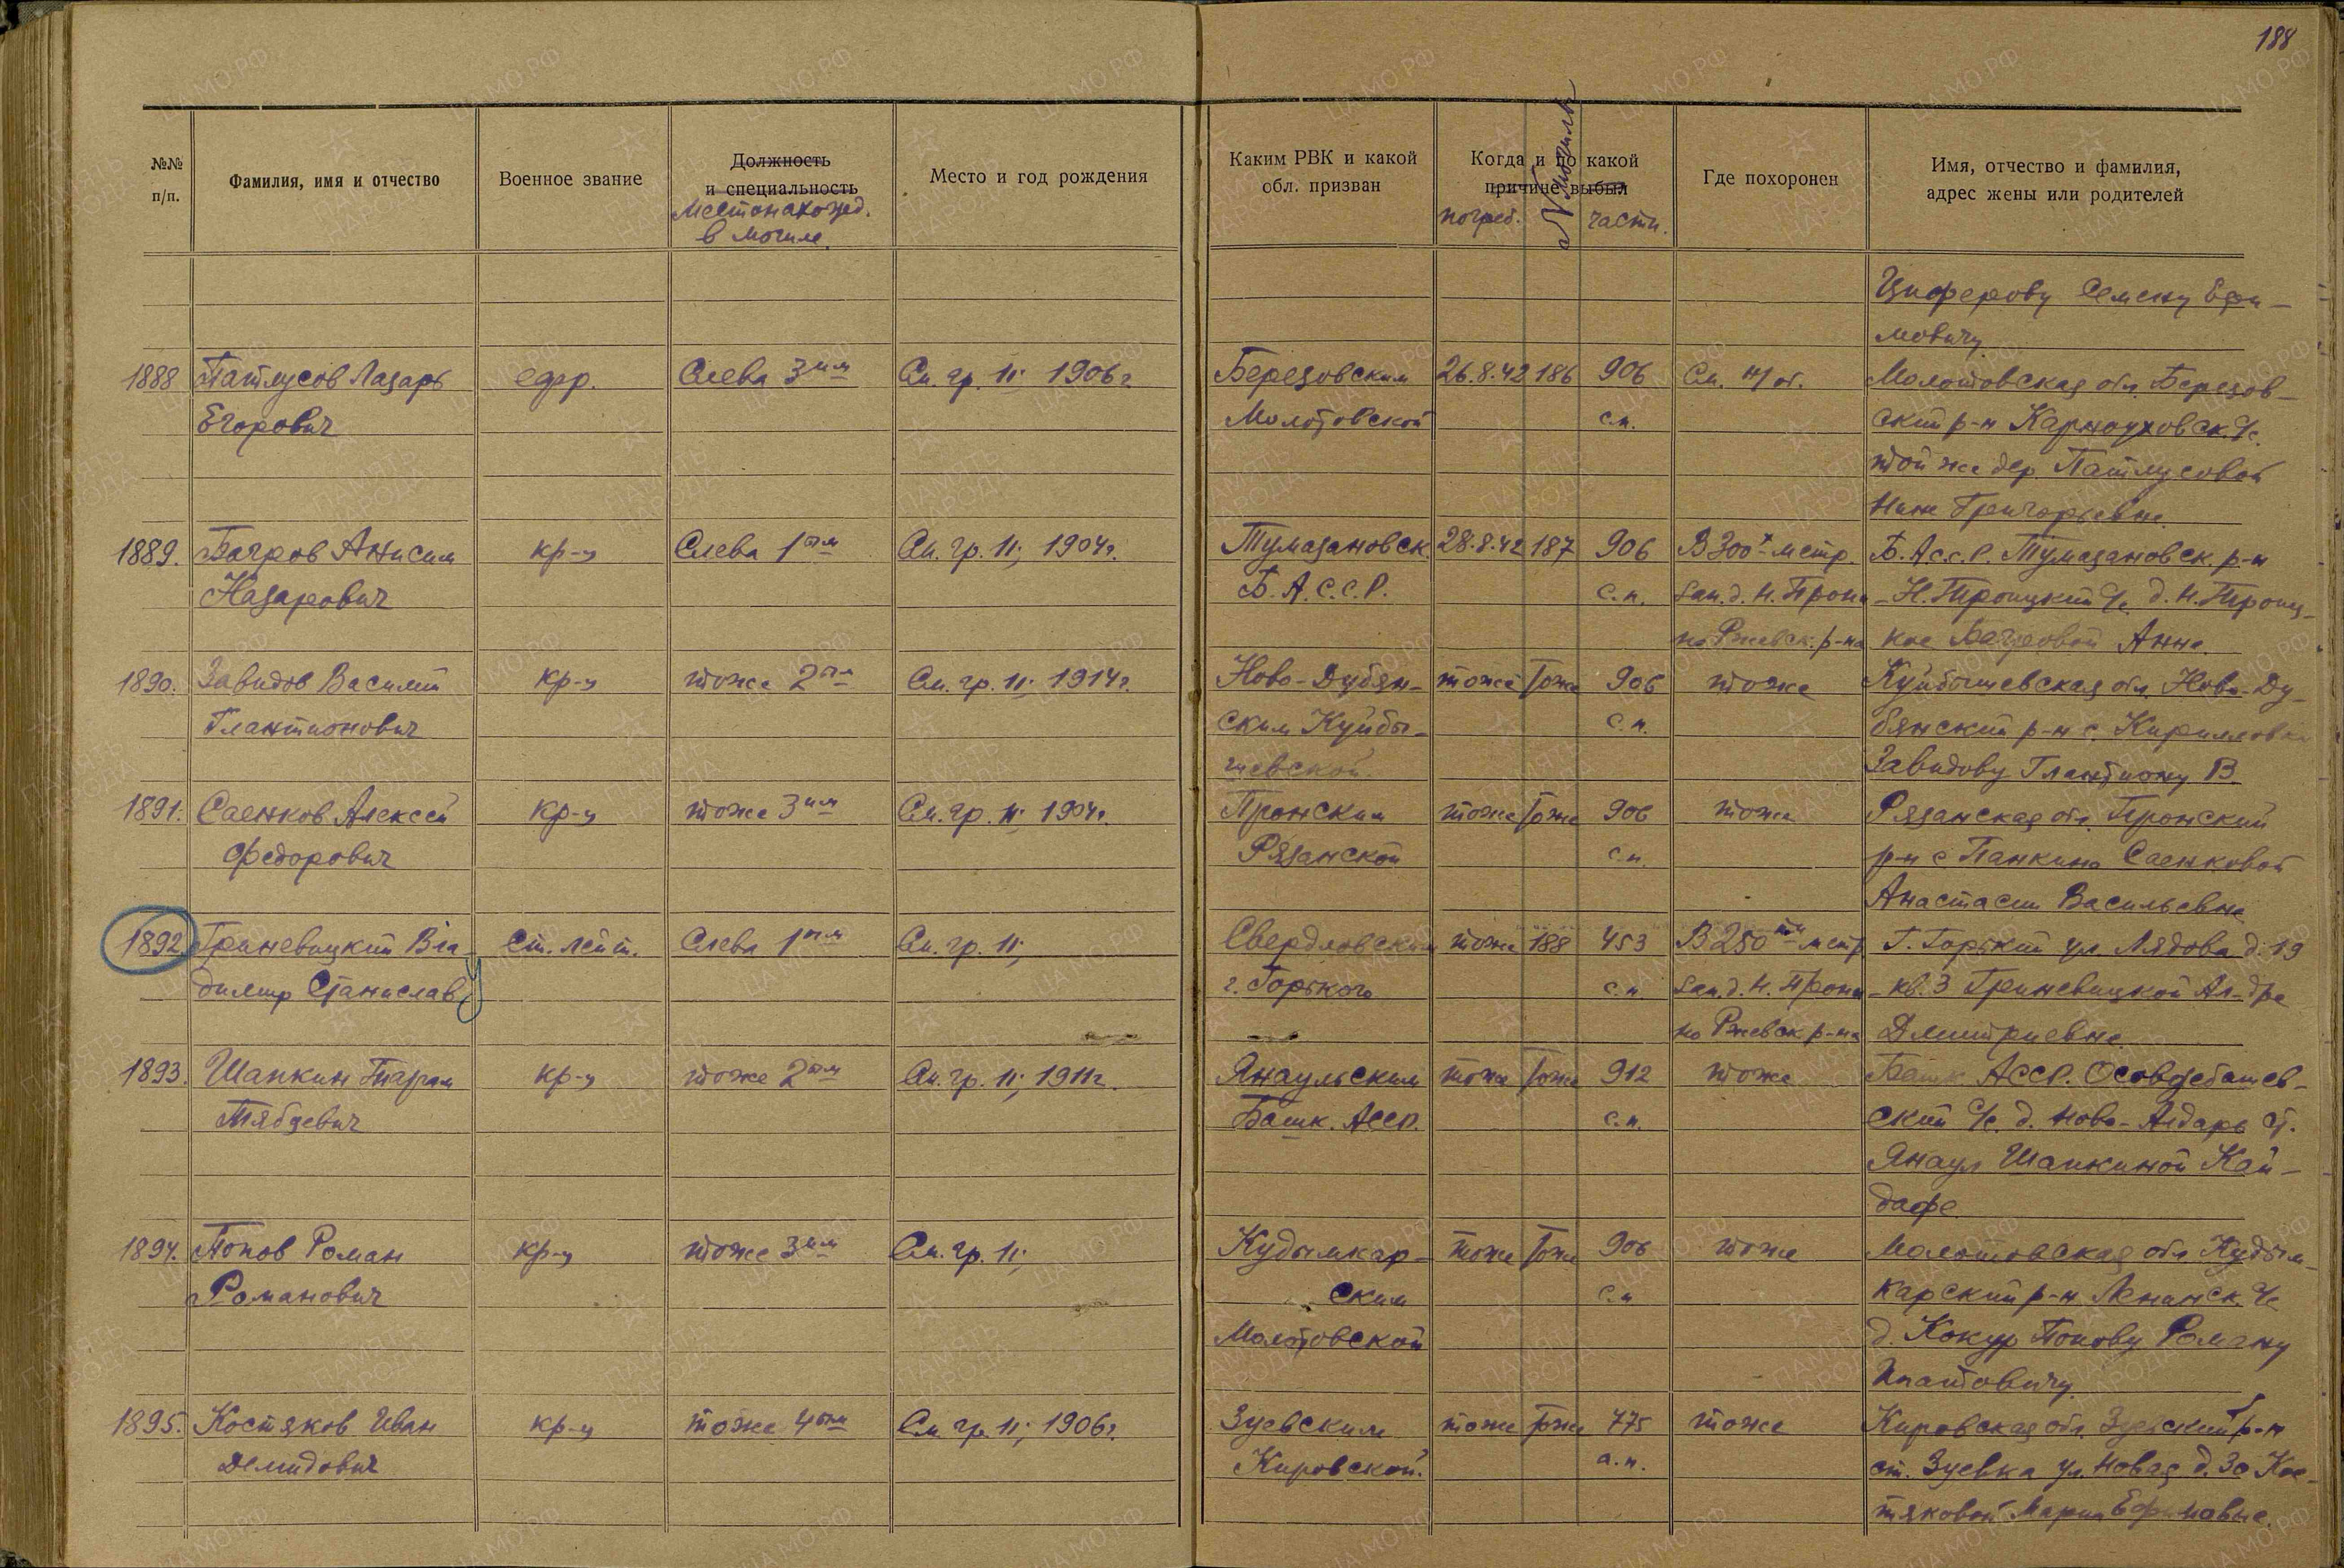 188
№№ п/п.
Фамилия, имя и отчество
Военное звание
Должность
и специальность
Местонахожд.
в могиле.
Место и год рождения
Каким РВК и какой
обл. призван
Когда и по какой
причине выбыл
погреб.
№ могилы
части.
Где похоронен
Имя, отчество и фамилия,
адрес жены или родителей
Циферову Семену Ефи-
мовичу
1888 Патлусов Лазарь ефр. Слева 3им См. гр. 11; 1906г Березовским 26.8.42 186 906 См. Молотовская обл. Березов-
Егорович Молотовской с.п. ский р-н Карнауховск. с/с.
той же дер. Патлусовой
Нине Григорьевне.
1889. Багров Анисим кр-ц Слева 1ым См. гр. 11; 1904г. Тумазановск. 28.8.42 187 906 В 300х метр. Б. А.с.с.Р. Тумазановск. р-н
Назарович Б. А. С. С. Р. с.п. зап. д. Н. Прони- Н. Троицкий с/с. д. Н. Троиц-
но Ржевск. р-на кое Багровой Анне.
1890. Завидов Василий кр-ц тоже 2ым См. гр. 11; 1914г. Ново-Дубян- тоже тоже 906 тоже Куйбышевская обл. Ново-Ду-
Глантионович ским Куйбы- с.п. бянский р-н с. Кирилловка
шевской. Завидову Глантиону В.
1891. Саенков Алексей кр-ц тоже 3им См. гр. 11; 1904г. Пронским тоже тоже 906 тоже Рязанская обл. Пронский
Федорович Рязанской с.п. р-н с Панкино Саенковой
Анастасии Васильевне
1892. Гриневицкий Вла- ст. лейт. Слева 1ым См. гр. 11; Свердловским тоже 188 453 В 250ти метр Г. Горький ул. Лядова д. 19
димир Станислав г. Горького с.п. зап. д. Н. Прони- кв. 3 Гриневицкой Ал-дре
но Ржевск р-на Дмитриевне.
1893. Шапкин кр-ц тоже 2ым См. гр. 11; 1911г. Янаульским тоже тоже 912 тоже Башк АССР.
Башк. АССР. с.п. ский с/с. д. Ново-Алдарь ст.
Янаул Шапкиной Кай-
дафе
1894. Попов Роман кр-ц тоже 3им См. гр. 11; Кудымкар- тоже тоже 906 тоже Молотовская обл Кудым-
Романович ским с.п карский р-н Ленинск. с/с
Молотовской д. Кокур Попову Роману
Ипатовичу.
1895. Костяков Иван кр-ц тоже 4ым См. гр. 11; 1906г. Зуевским тоже тоже 775 тоже Кировская обл. Зуевский р-н
Демидович Кировской. а.п. ст. Зуевка ул. Новая д. 30 Кос-
тяковой Марии Ефимовне.